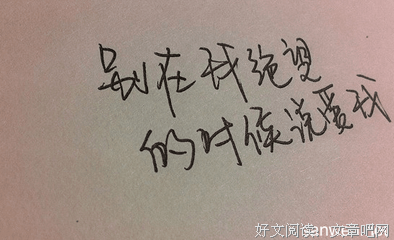 别在我绝望
的时候说爱我
好文阅读 文章吧网